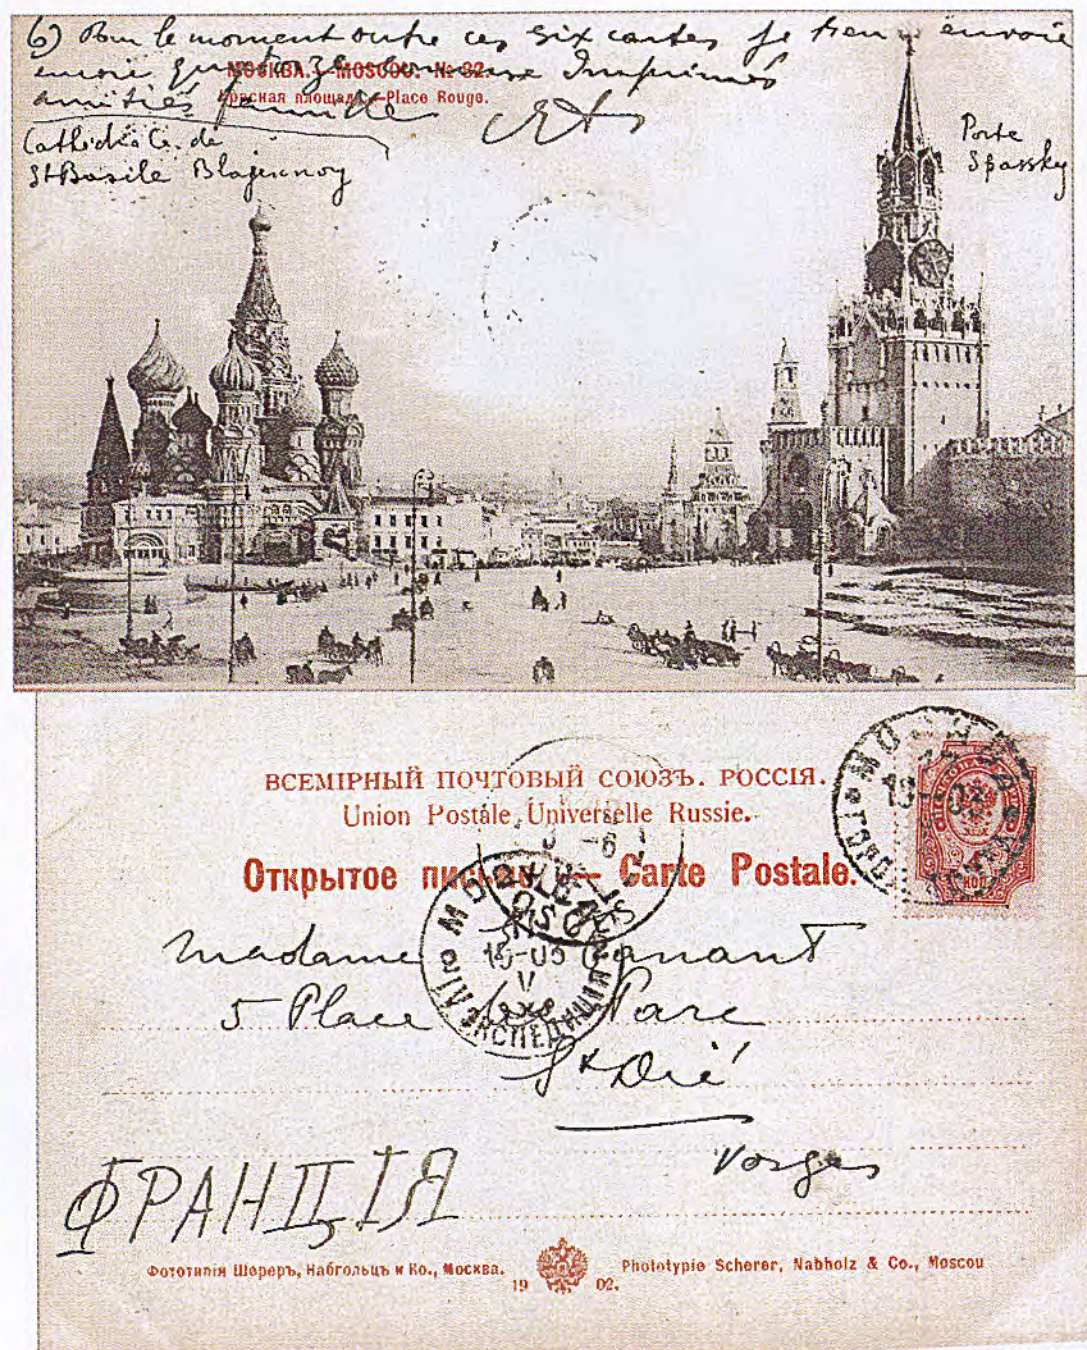 6) Pour le moment outre ces six cartes je t'en envoie
encore quatorze comme Imprimés
amitiés famille
МОСКВА. – MOSCOU. № 82.
Красная площадь. – Place Rouge.
Cathédrale de
St Basile Blajennoy
Porte
Spassky
ВСЕМІРНЫЙ ПОЧТОВЫЙ СОЮЗЪ. РОССІЯ.
Union Postale Universelle Russie.
Открытое письмо. — Carte Postale.
МОСКВА
ЭКСПЕДИЦІЯ
Madame
5 Place du Parc
St Dié
Vosges
ФРАНЦІЯ
Фототипія Шереръ, Набгольцъ и Ко., Москва.
1902.
Phototypie Scherer, Nabholz & Co., Moscou